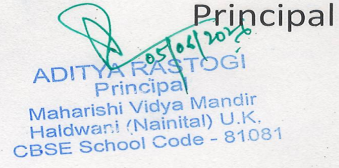 Principal
05/06/2026
ADITYA RASTOGI
Principal
Maharishi Vidya Mandir
Haldwani (Nainital) U.K.
CBSE School Code - 81081